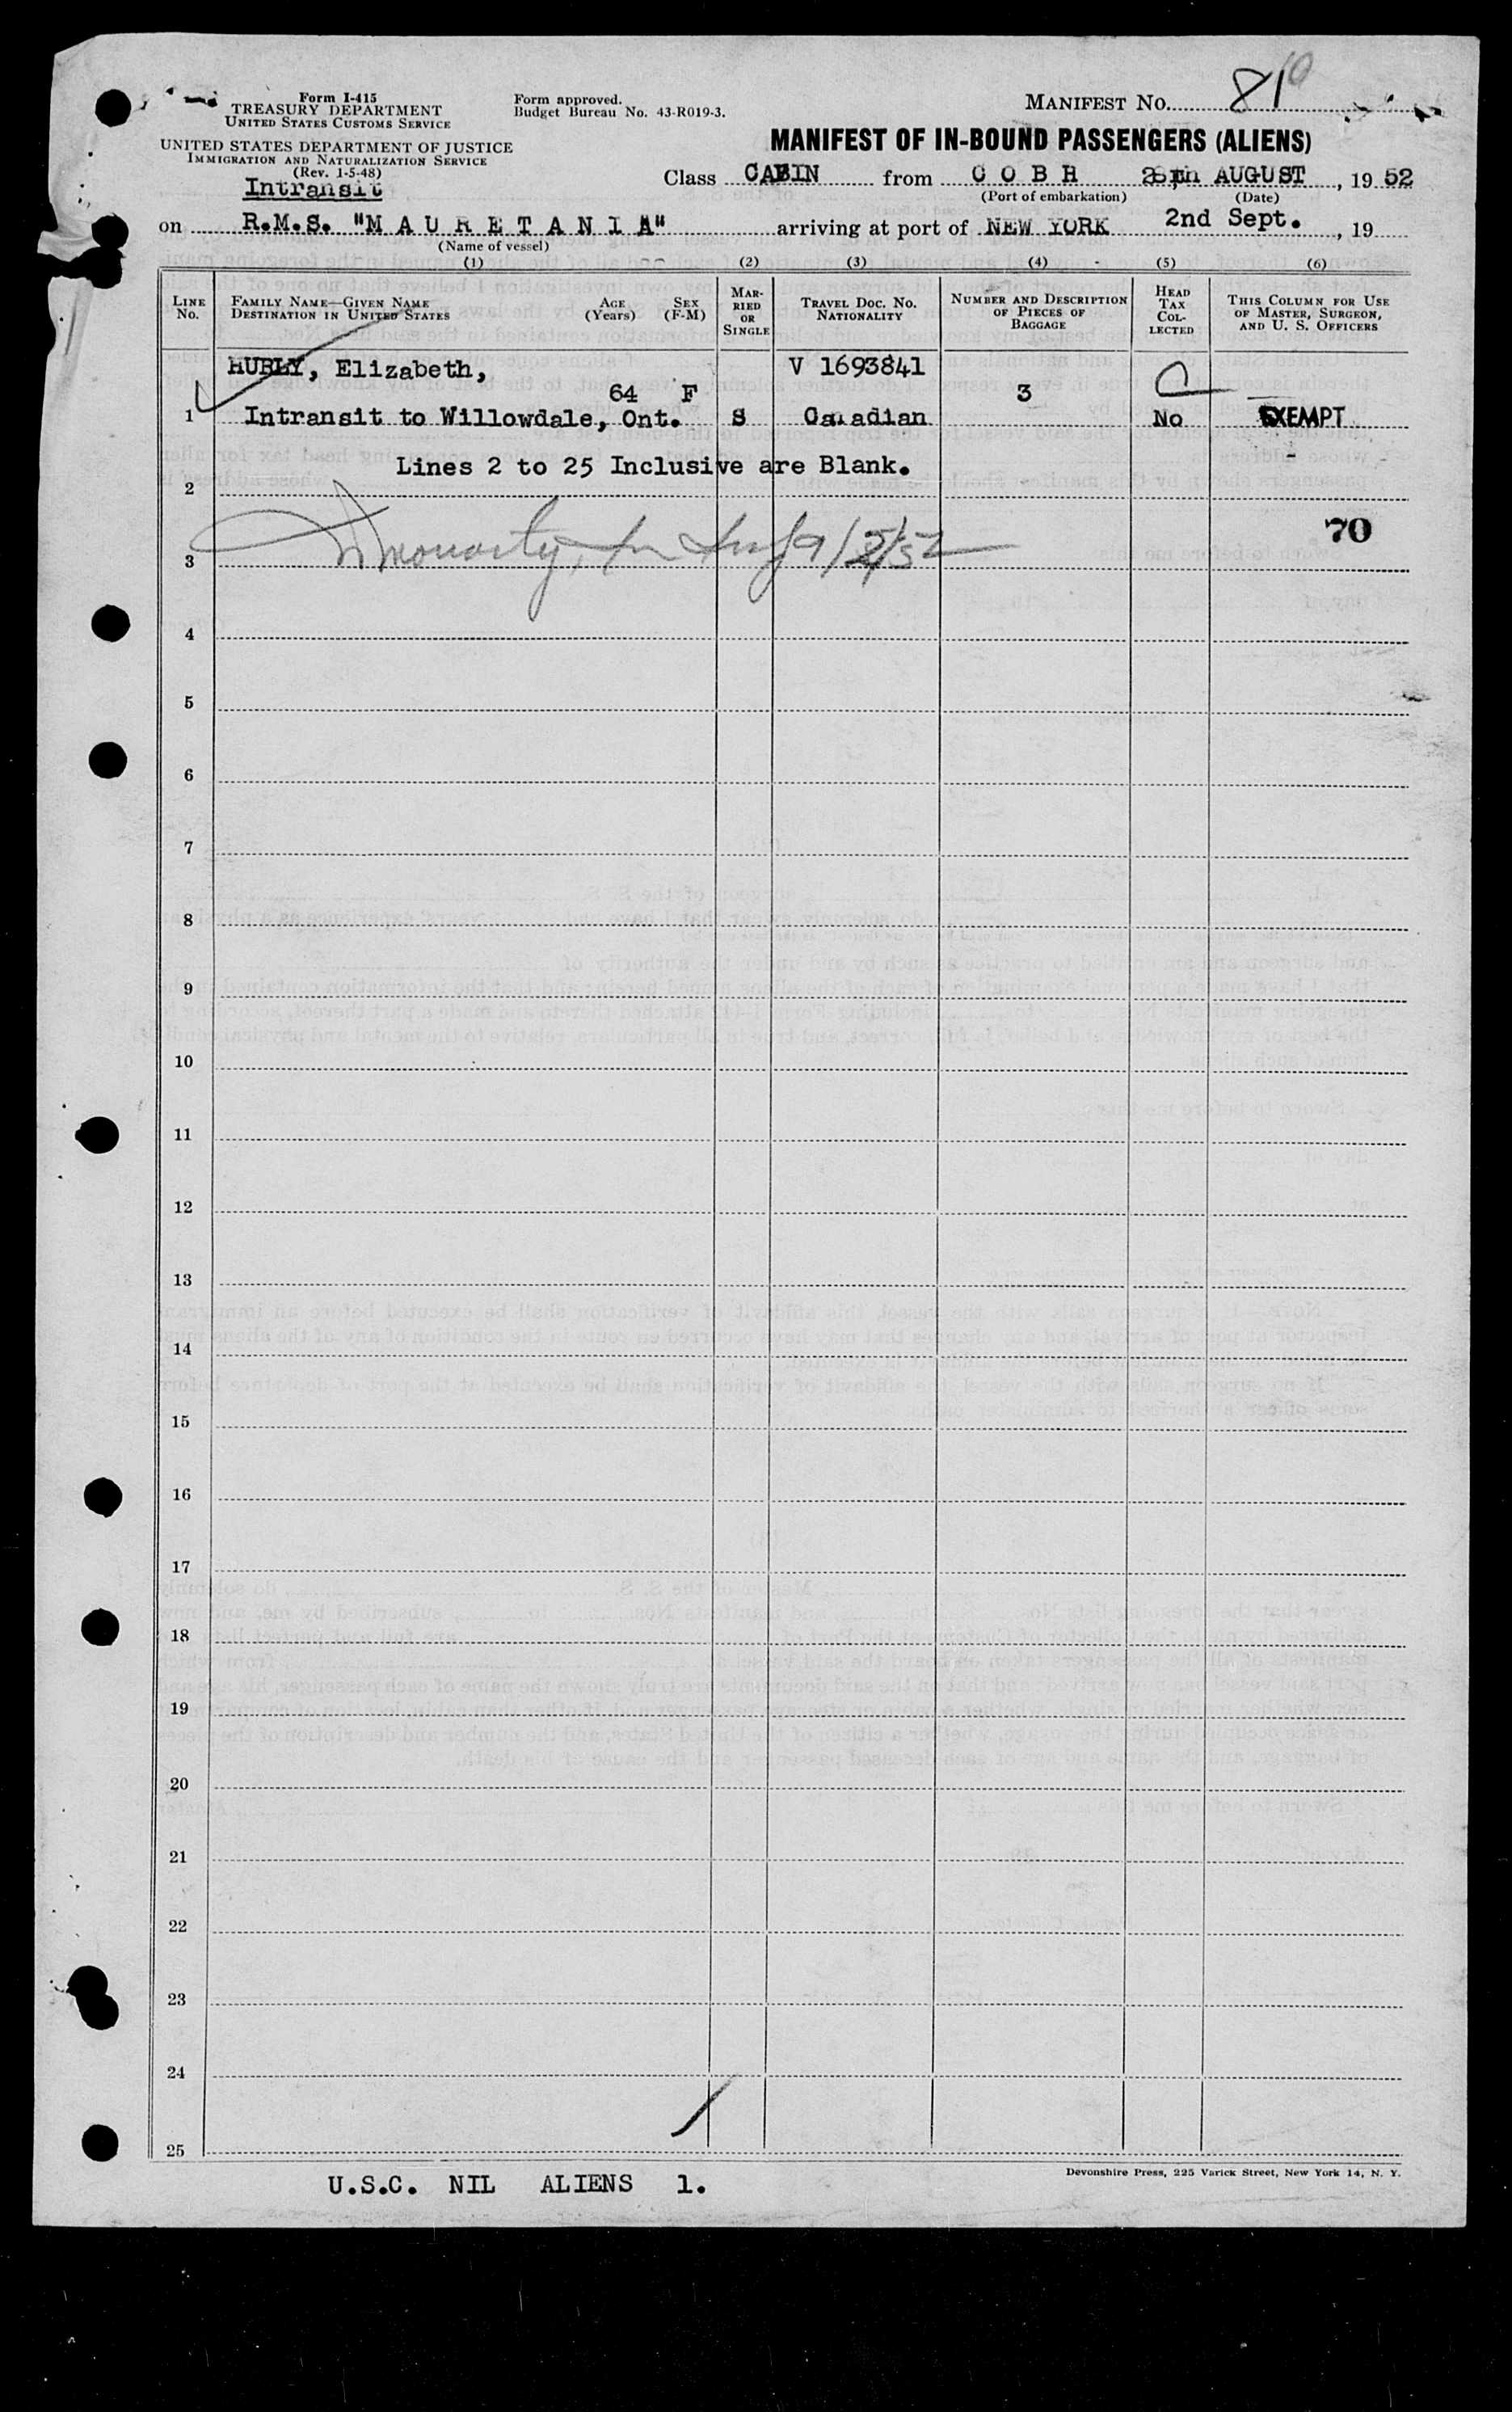 Form I-415
TREASURY DEPARTMENT
UNITED STATES CUSTOMS SERVICE
UNITED STATES DEPARTMENT OF JUSTICE
IMMIGRATION AND NATURALIZATION SERVICE
(Rev. 1-5-48)
Form approved.
Budget Bureau No. 43-R019-3.
MANIFEST No. 81
MANIFEST OF IN-BOUND PASSENGERS (ALIENS)
Intransit
Class CABIN from C O B H AUGUST, 19 52
(Port of embarkation) (Date)
on R.M.S. "M A U R E T A N I A" arriving at port of NEW YORK 2nd Sept., 19
(Name of vessel)
(1) (2) (3) (4) (5) (6)
LINE No. FAMILY NAME—GIVEN NAME DESTINATION IN UNITED STATES AGE (Years) SEX (F-M) MARRIED OR SINGLE TRAVEL DOC. No. NATIONALITY NUMBER AND DESCRIPTION OF PIECES OF BAGGAGE HEAD TAX COLLECTED THIS COLUMN FOR USE OF MASTER, SURGEON, AND U. S. OFFICERS
HURLY, Elizabeth, V 1693841
64 F 3
1 Intransit to Willowdale, Ont. S Canadian No EXEMPT
Lines 2 to 25 Inclusive are Blank.
2
70
3
4
5
6
7
8
9
10
11
12
13
14
15
16
17
18
19
20
21
22
23
24
25
Devonshire Press, 225 Varick Street, New York 14, N. Y.
U.S.C. NIL ALIENS 1.